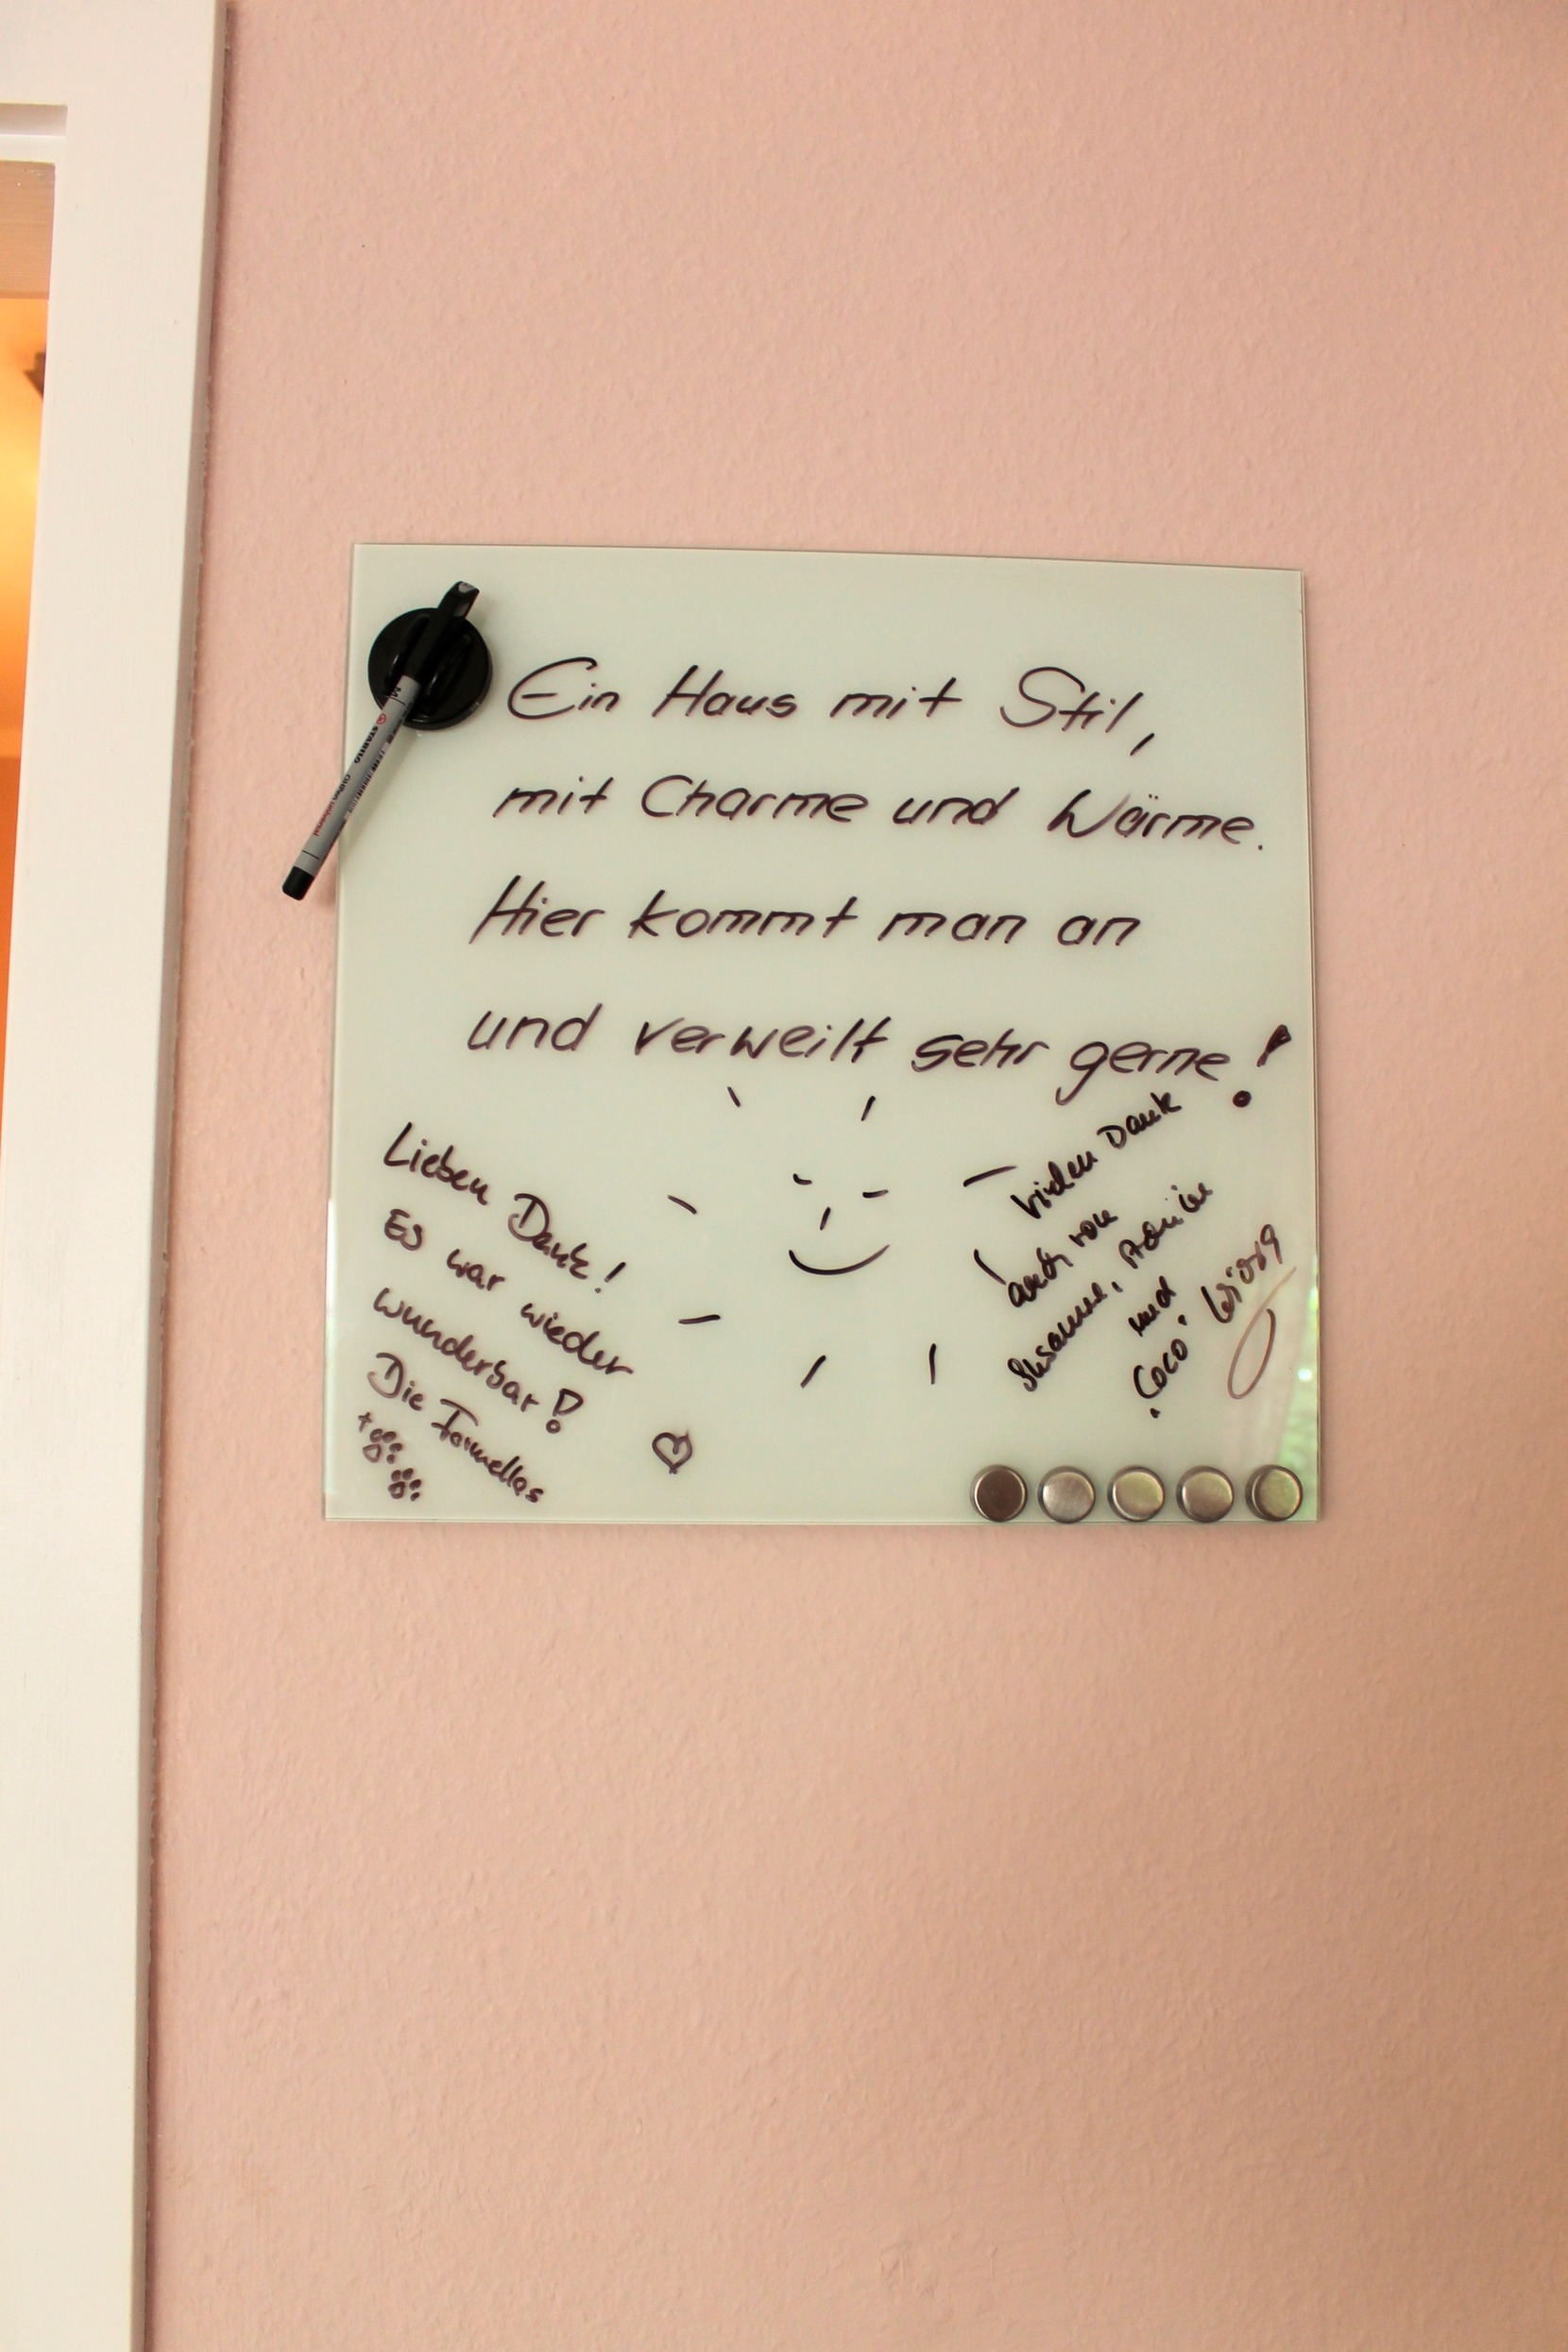 Ein Haus mit Stil,
mit Charme und Wärme.
Hier kommt man an
und verweilt sehr gerne!
Lieben Dank!
Es war wieder
wunderbar!
Die
Vielen Dank
auch von
Susanne,
und
Coco.
STABILO